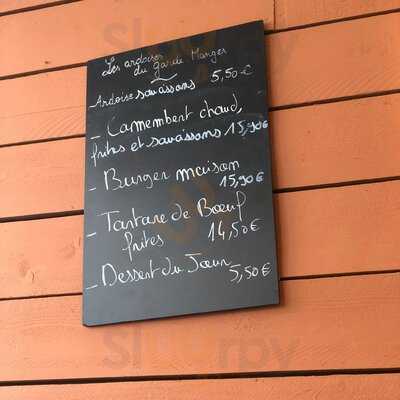 Les ardoises
du Garde Manger
- Ardoise savassons 5,50€
- Camembert chaud,
frites et savassons 15,90€
- Burger maison
15,90€
- Tartare de Bœuf
frites 14,50€
- Dessert du Jour
5,50€